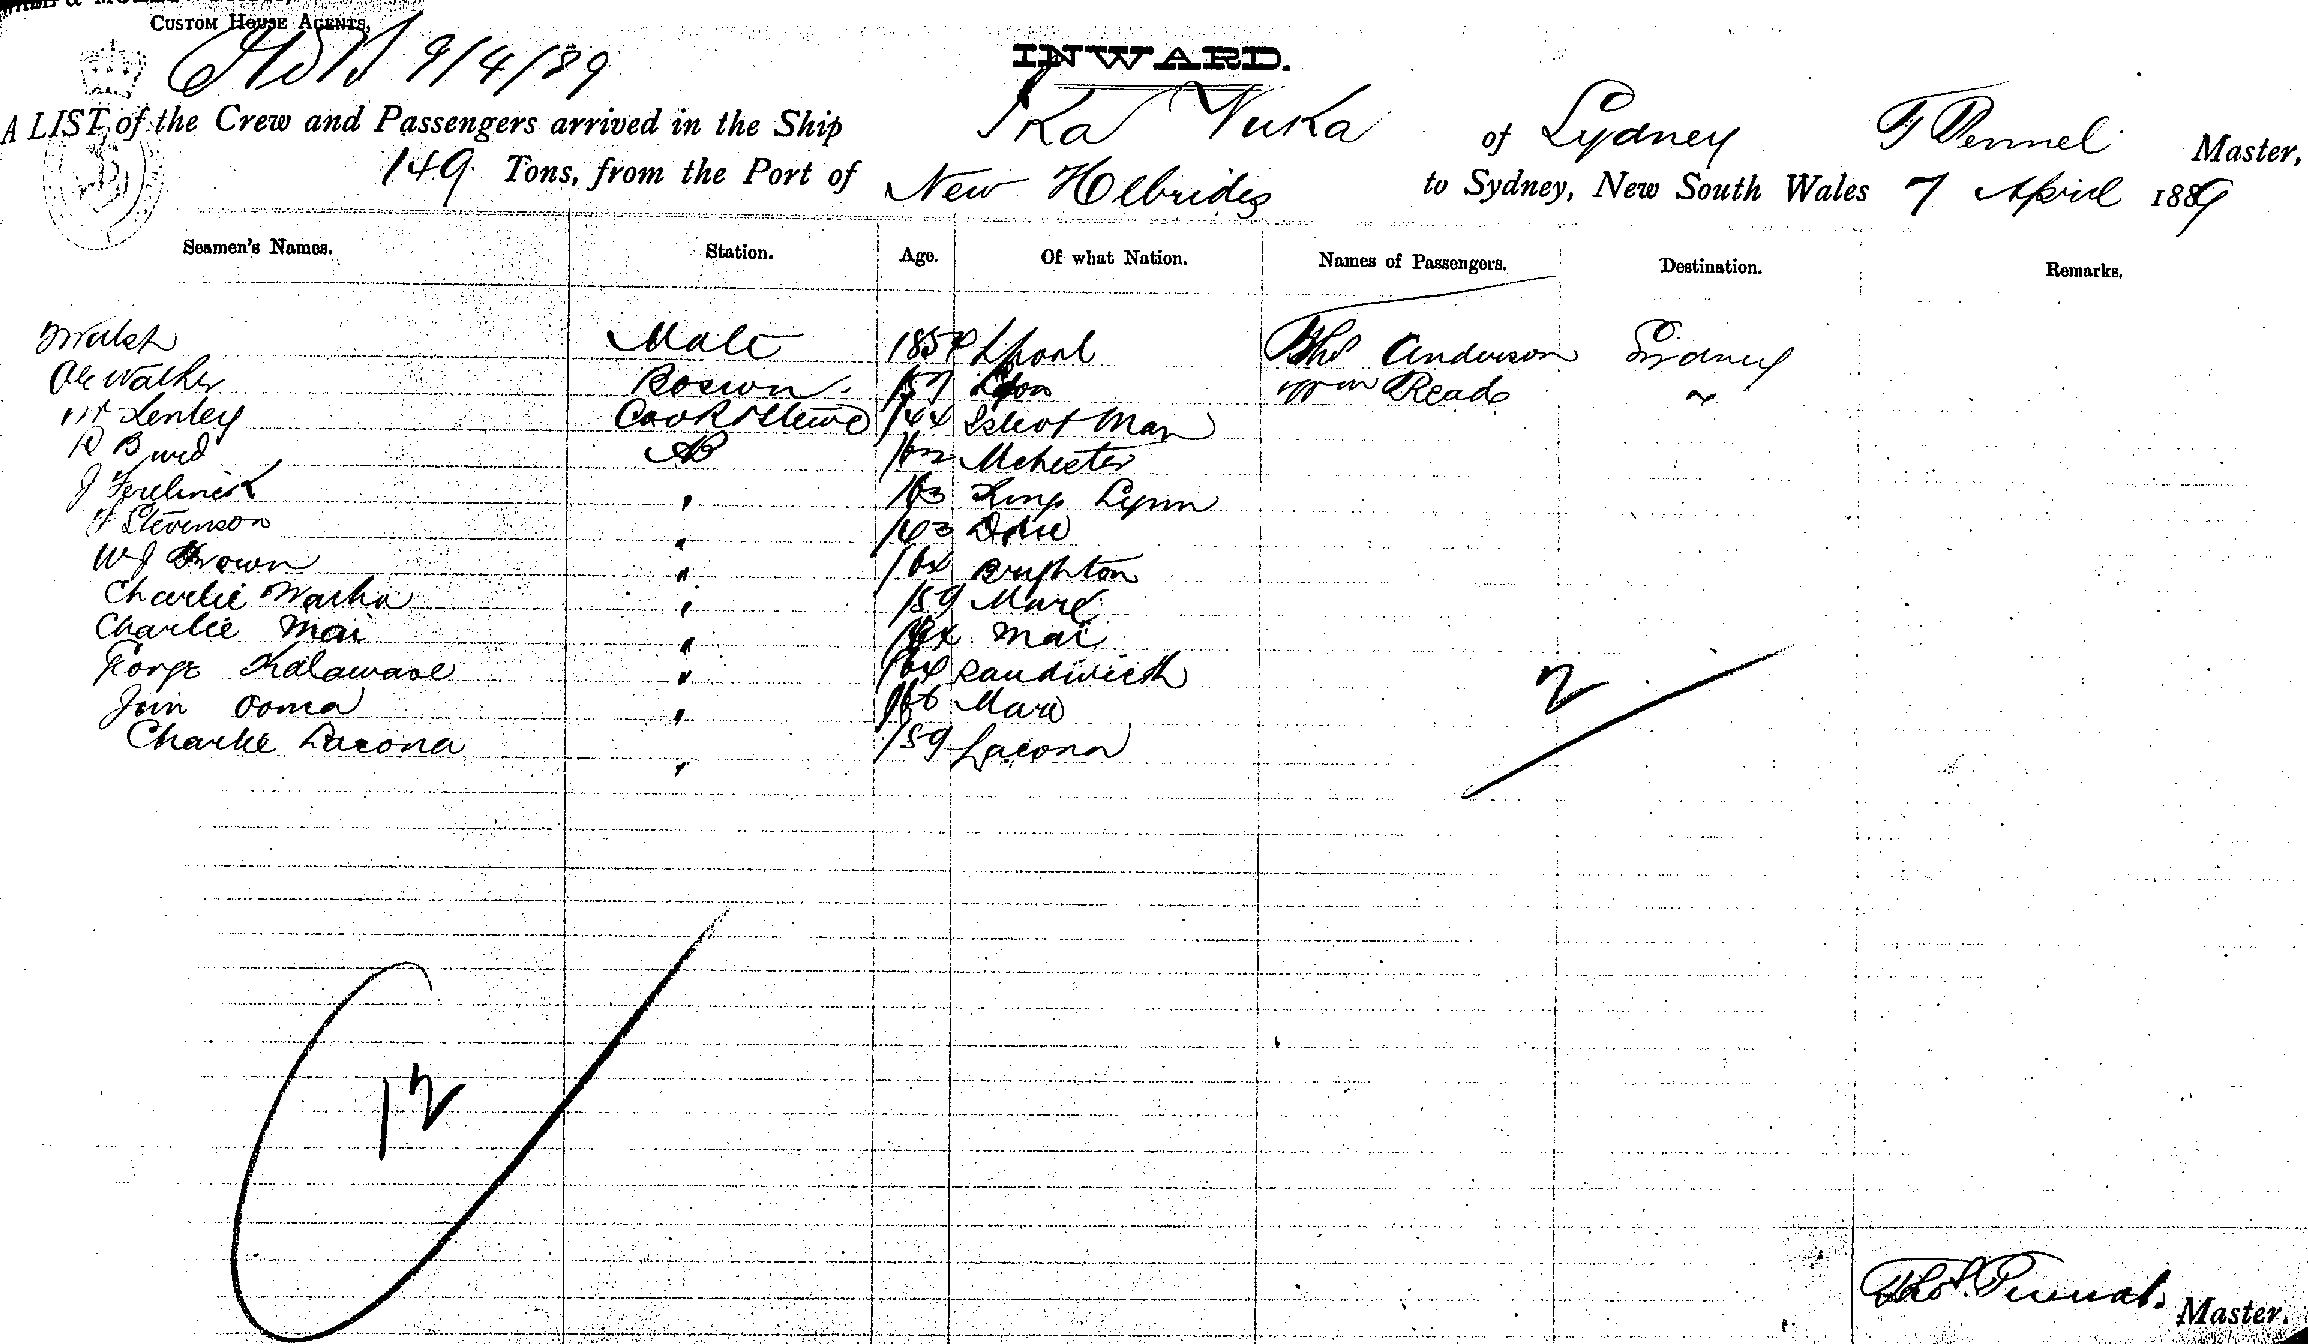 CUSTOM HOUSE AGENTS,
9/4/89
INWARD.
A LIST of the Crew and Passengers arrived in the Ship Ika Vuka of Sydney T Pennel Master,
149 Tons, from the Port of New Hebrides to Sydney, New South Wales 7 April 1889
Seamen's Names. Station. Age. Of what Nation. Names of Passengers. Destination. Remarks.
Walsh Mate 185 Lpool Thos Anderson Sydney
Walker Boswn /57 Read "
Lenley Cook & Stewd /44 Isle of Man
R B AB /62 Mchester
J " /63 Kings Lynn
Stevenson " /63
W J Brown " /64 Brighton
Charlie " /59 Mare
Charlie Mai " Mai
George " /64 Sandwich
Jim Ooma " /66 Mare
Charlie Lacona " /59 Lacona
2
12
Thos. Pennel. Master.